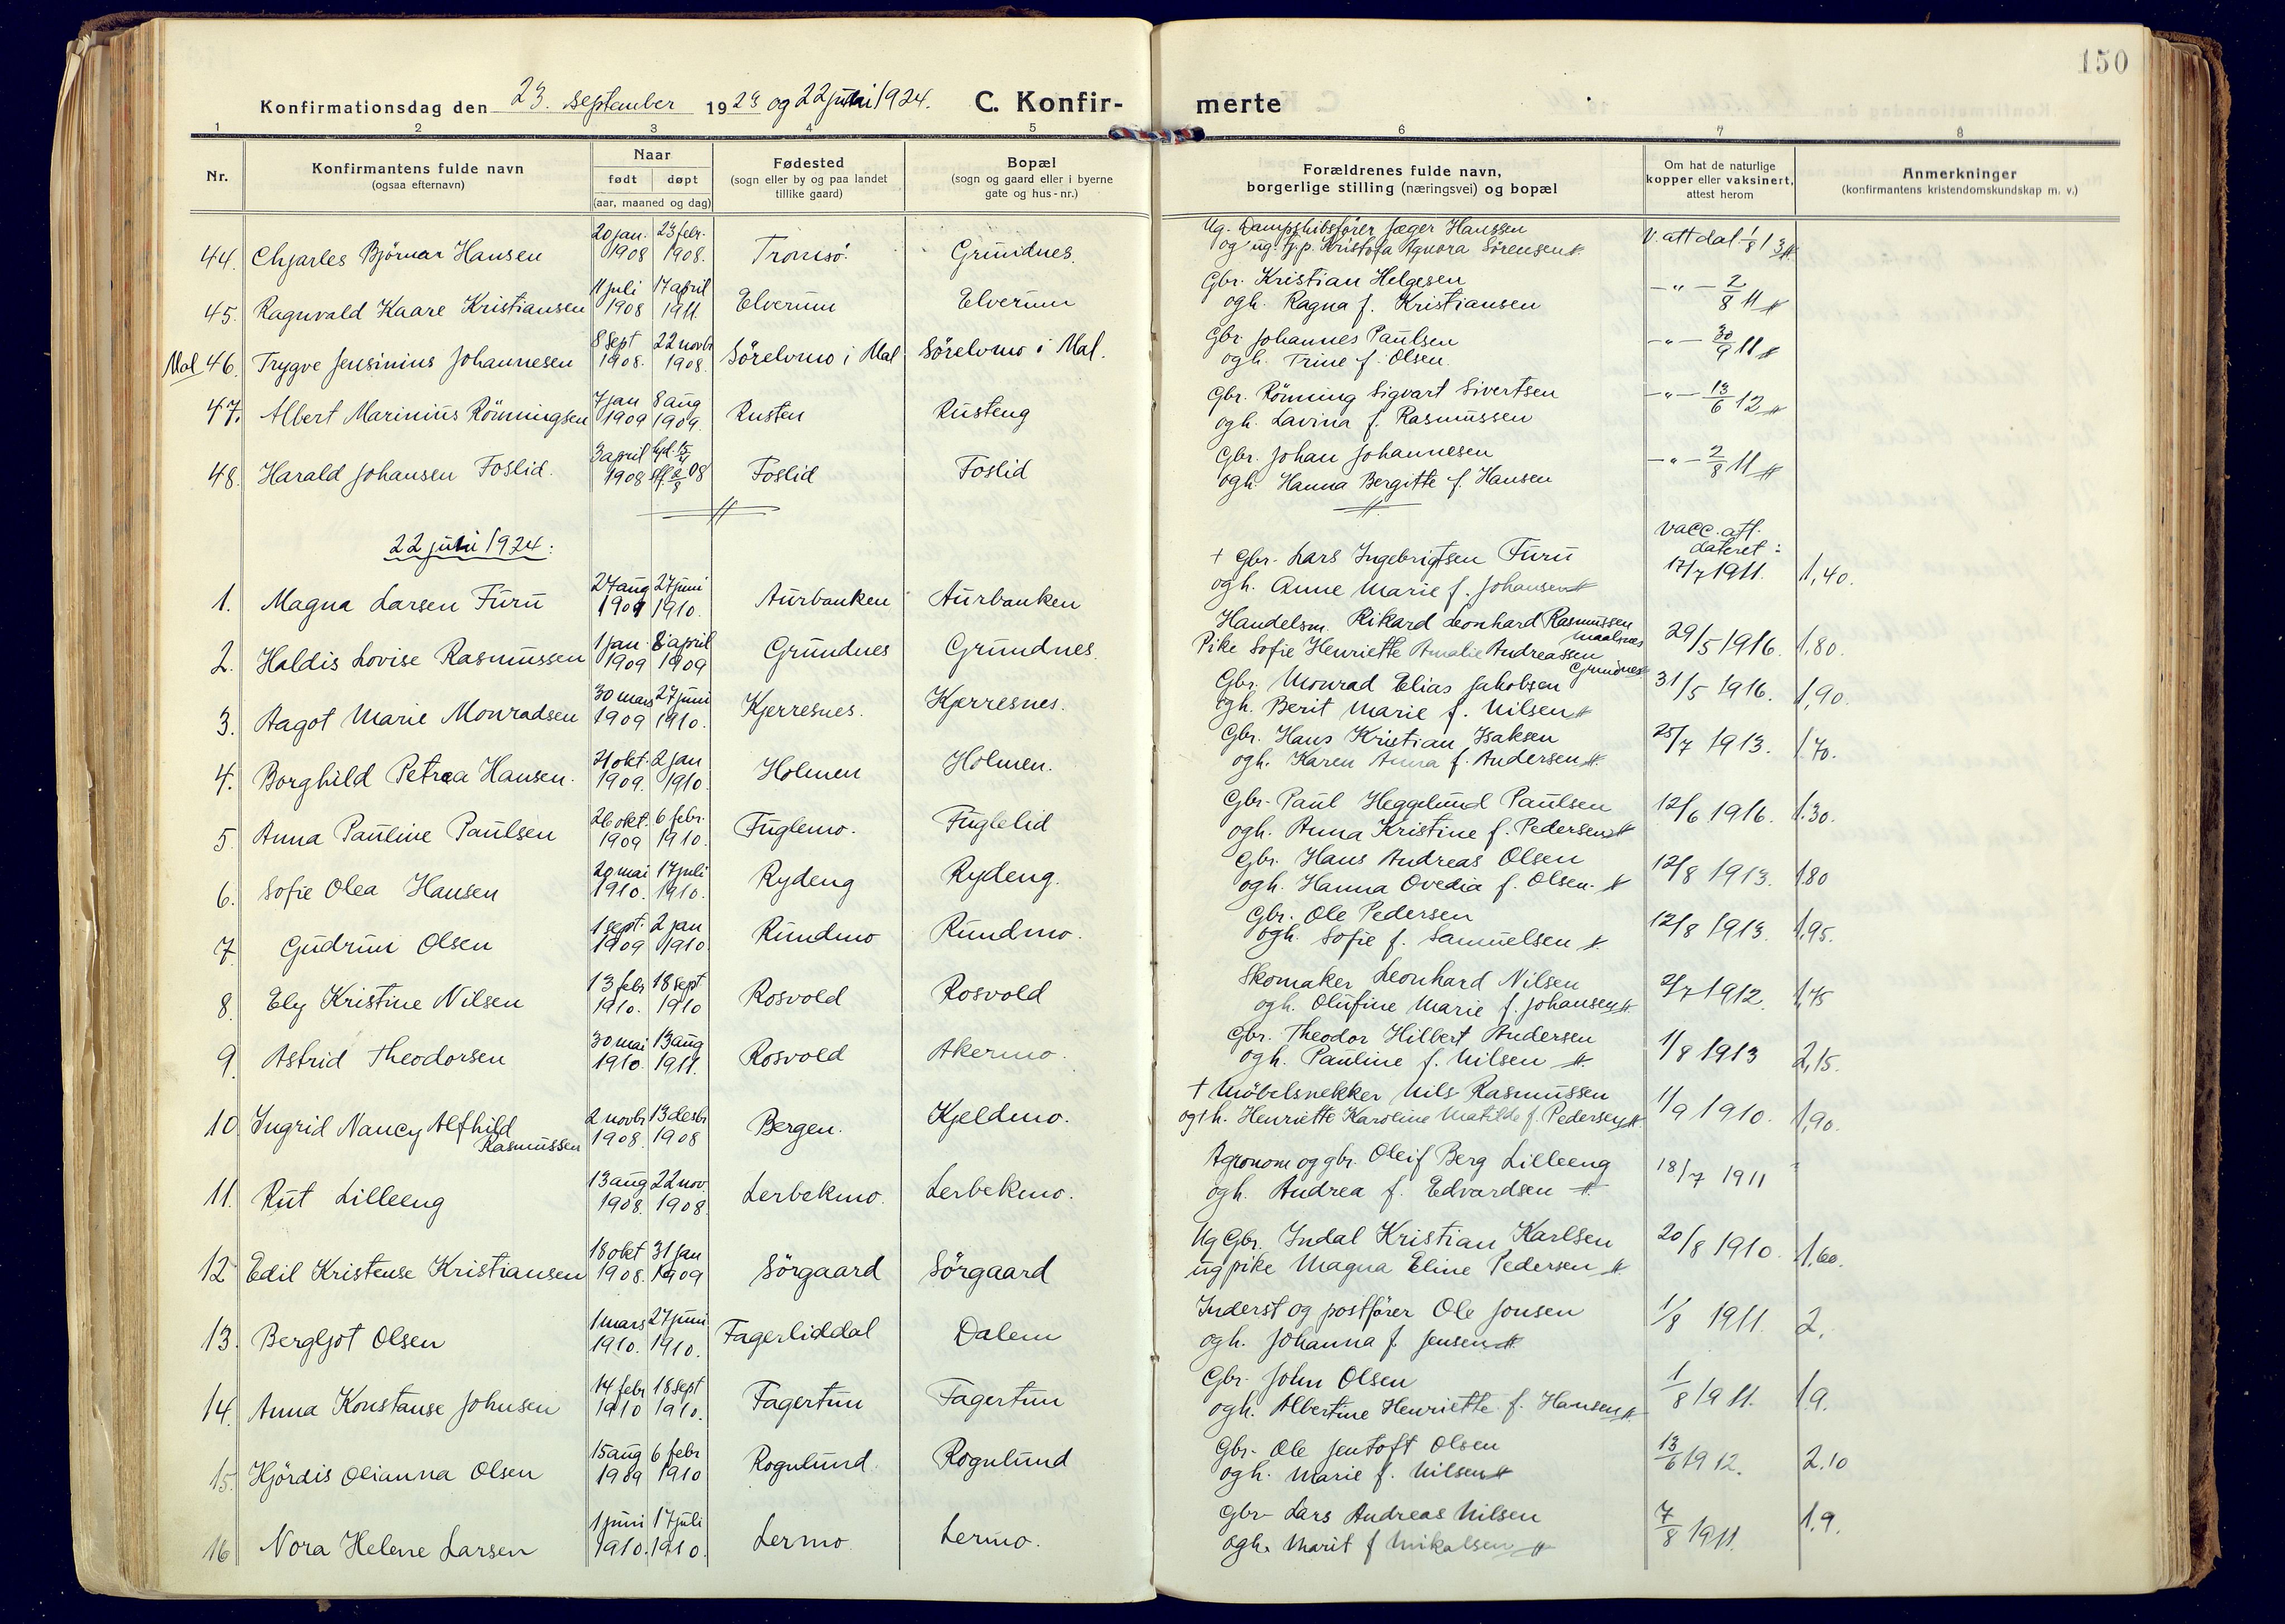 150
Konfirmationsdag den 23. september 1923 og 22 juni 1924. C. Konfir- merte
1 2 3 4 5 6 7 8
Nr.
Konfirmantens fulde navn
(ogsaa efternavn)
Naar
født døpt
(aar, maaned og dag)
Fødested
(sogn eller by og paa landet
tillike gaard)
Bopæl
(sogn og gaard eller i byerne
gate og hus-nr.)
Forældrenes fulde navn,
borgerlige stilling (næringsvei) og bopæl
Om hat de naturlige
kopper eller vaksinert,
attest herom
Anmerkninger
(konfirmantens kristendomskundskap m. v.)
20 jan. 23 febr. Ug. Dampskibsfører Jæger Hanssen
44. Chjarles Björnar Hansen 1908 1908. Tromsö. Grundnes. og ug. Kristofa Agnora Sörensen V. att dat 1/8 13
11 juli 17 april Gbr. Kristian Helgesen
45. Ragnvald Kaare Kristiansen 1908 1911. Elverum Elverum ogh. Ragna f. Kristiansen -"- 2/8 11
8 sept 22 novbr Gbr. Johannes Paulsen
Mal 46. Trygve Jensinius Johannesen 1908. 1908. Sörelvmo i Mal. Sörelvmo i Mal. ogh. Trine f. Olsen. -"- 30/9 11
7 jan 8 aug Gbr. Rönning Sigvart Sivertsen
47. Albert Marinius Rönningsen 1909 1909. Rusten Rusteng ogh. Lavina f. Rasmussen -"- 13/6 12
3 april Gbr. Johan Johannesen
48. Harald Johansen Foslid. 1908 08 Foslid Foslid ogh. Hanna Bergitte f. Hansen -"- 2/8 11
22 juni 1924:
vacc. att.
dateret:
27 aug 27 juni + Gbr. Lars Ingebrigtsen Furu
1. Magna Larsen Furu 1909 1910. Aurbanken Aurbanken ogh. Anne Marie f. Johansen 17/7 1911. 1,40.
1 jan. 8 april Handelsm. Rikard Leonhard Rasmussen Maalsnes
2. Haldis Lovise Rasmussen 1909 1909 Grundnes Grundnes. Pike Sofie Henriette Amalie Andreassen Grundnes 29/5 1916. 1,80.
30 mars 27 juni Gbr. Monrad Elias Jakobsen
3. Aagot Marie Monradsen 1909 1910. Kjerresnes. Kjerresnes. ogh. Berit Marie f. Nilsen 31/5 1916. 1,90.
21 okt. 2 jan Gbr. Hans Kristian Isaksen
4. Borghild Petrea Hansen. 1909. 1910. Holmen Holmen. ogh. Karen Anna f. Andersen 25/7 1913. 1,70.
26 okt. 6 febr. Gbr. Paul Heggelund Paulsen
5. Anna Pauline Paulsen 1909 1910. Fuglemo. Fuglelid ogh. Anna Kristine f. Pedersen 12/6 1916. 1.30.
20 mai 17 juli Gbr. Hans Andreas Olsen
6. Sofie Olea Hansen 1910. 1910. Rydeng Rydeng. ogh. Hanna Ovedia f. Olsen. 12/8 1913. 1.80
1 sept. 2 jan Gbr. Ole Pedersen
7 Gudrun Olsen 1909 1910. Rundmo Rundmo. ogh. Sofie f. Samuelsen 12/8 1913. 1,95.
13 febr 18 sept Skomaker Leonhard Nilsen
8. Ely Kristine Nilsen 1910. 1910 Rosvold Rosvold ogh. Olufine Marie f. Johansen 2/7 1912. 1,75
30 mai 13 aug Gbr. Theodor Hilbert Andersen
9. Astrid Theodorsen 1910. 1911. Rosvold Akermo. ogh. Pauline f. Nilsen 1/8 1913 2,15.
2 novbr 13 desbr + Möbelsnekker Nils Rasmussen
10. Ingrid Nancy Alfhild Rasmussen 1908. 1908 Bergen. Kjeldmo. ogh. Henriette Karoline Matilde f. Pedersen 1/9 1910. 1,90.
13 aug 22 nov. Agronom og gbr. Oleif Berg Lilleeng
11. Rut Lilleeng 1908. 1908. Lerbekmo. Lerbekmo. ogh. Andrea f. Edvardsen 18/7 1911
18 okt 31 jan Ug Gbr. Indal Kristian Karlsen
12 Edil Kristense Kristiansen 1908. 1909 Sörgaard Sörgaard ug pike Magna Eline Pedersen 20/8 1910. 1,60.
1 mars 27 juni Inderst og postfører Ole Jonsen
13. Bergljot Olsen 1910. 1910. Fagerliddal Dalem ogh. Johanna f. Jensen 1/8 1911 2.
14 febr 18 sept Gbr. John Olsen
14. Anna Konstanse Johnsen 1910 1910. Fagertun Fagertun ogh. Albertine Henriette f. Hansen 1/8 1911. 1.9.
15 aug 6 febr Gbr. Ole Jentoft Olsen
15. Hjördis Olianna Olsen 1909 1910 Rognlund. Rognlund ogh. Marie f. Nilsen 13/6 1912. 2.10
1 juni 17 juli Gbr. Lars Andreas Nilsen
16 Nora Helene Larsen 1910. 1910. Lermo. Lermo. ogh. Marit f Mikalsen 7/8 1911. 1.9.